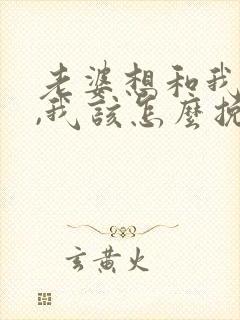 老婆想和我
,我该怎么挽
玄黄火